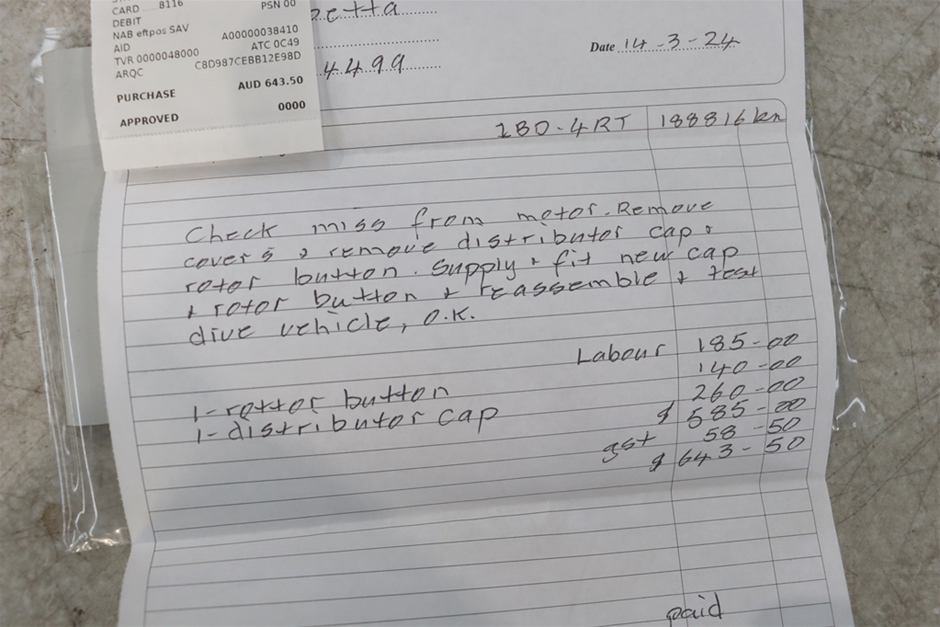 CARD 8116 PSN 00
DEBIT
NAB eftpos SAV
AID A00000038410
TVR 0000048000 ATC 0C49
ARQC C8D987CEBB12E98D
PURCHASE AUD 643.50
APPROVED 0000
etta
4499
Date 14-3-24
1BO-4RT 188816 km
Check miss from motor. Remove
covers & remove distributor cap &
rotor button. Supply & fit new cap
& rotor button & reassemble & test
dive vehicle, O.K.
Labour 185-00
1-rottor button 140-00
1-distributor cap 260-00
$ 585-00
gst 58-50
$ 643-50
paid